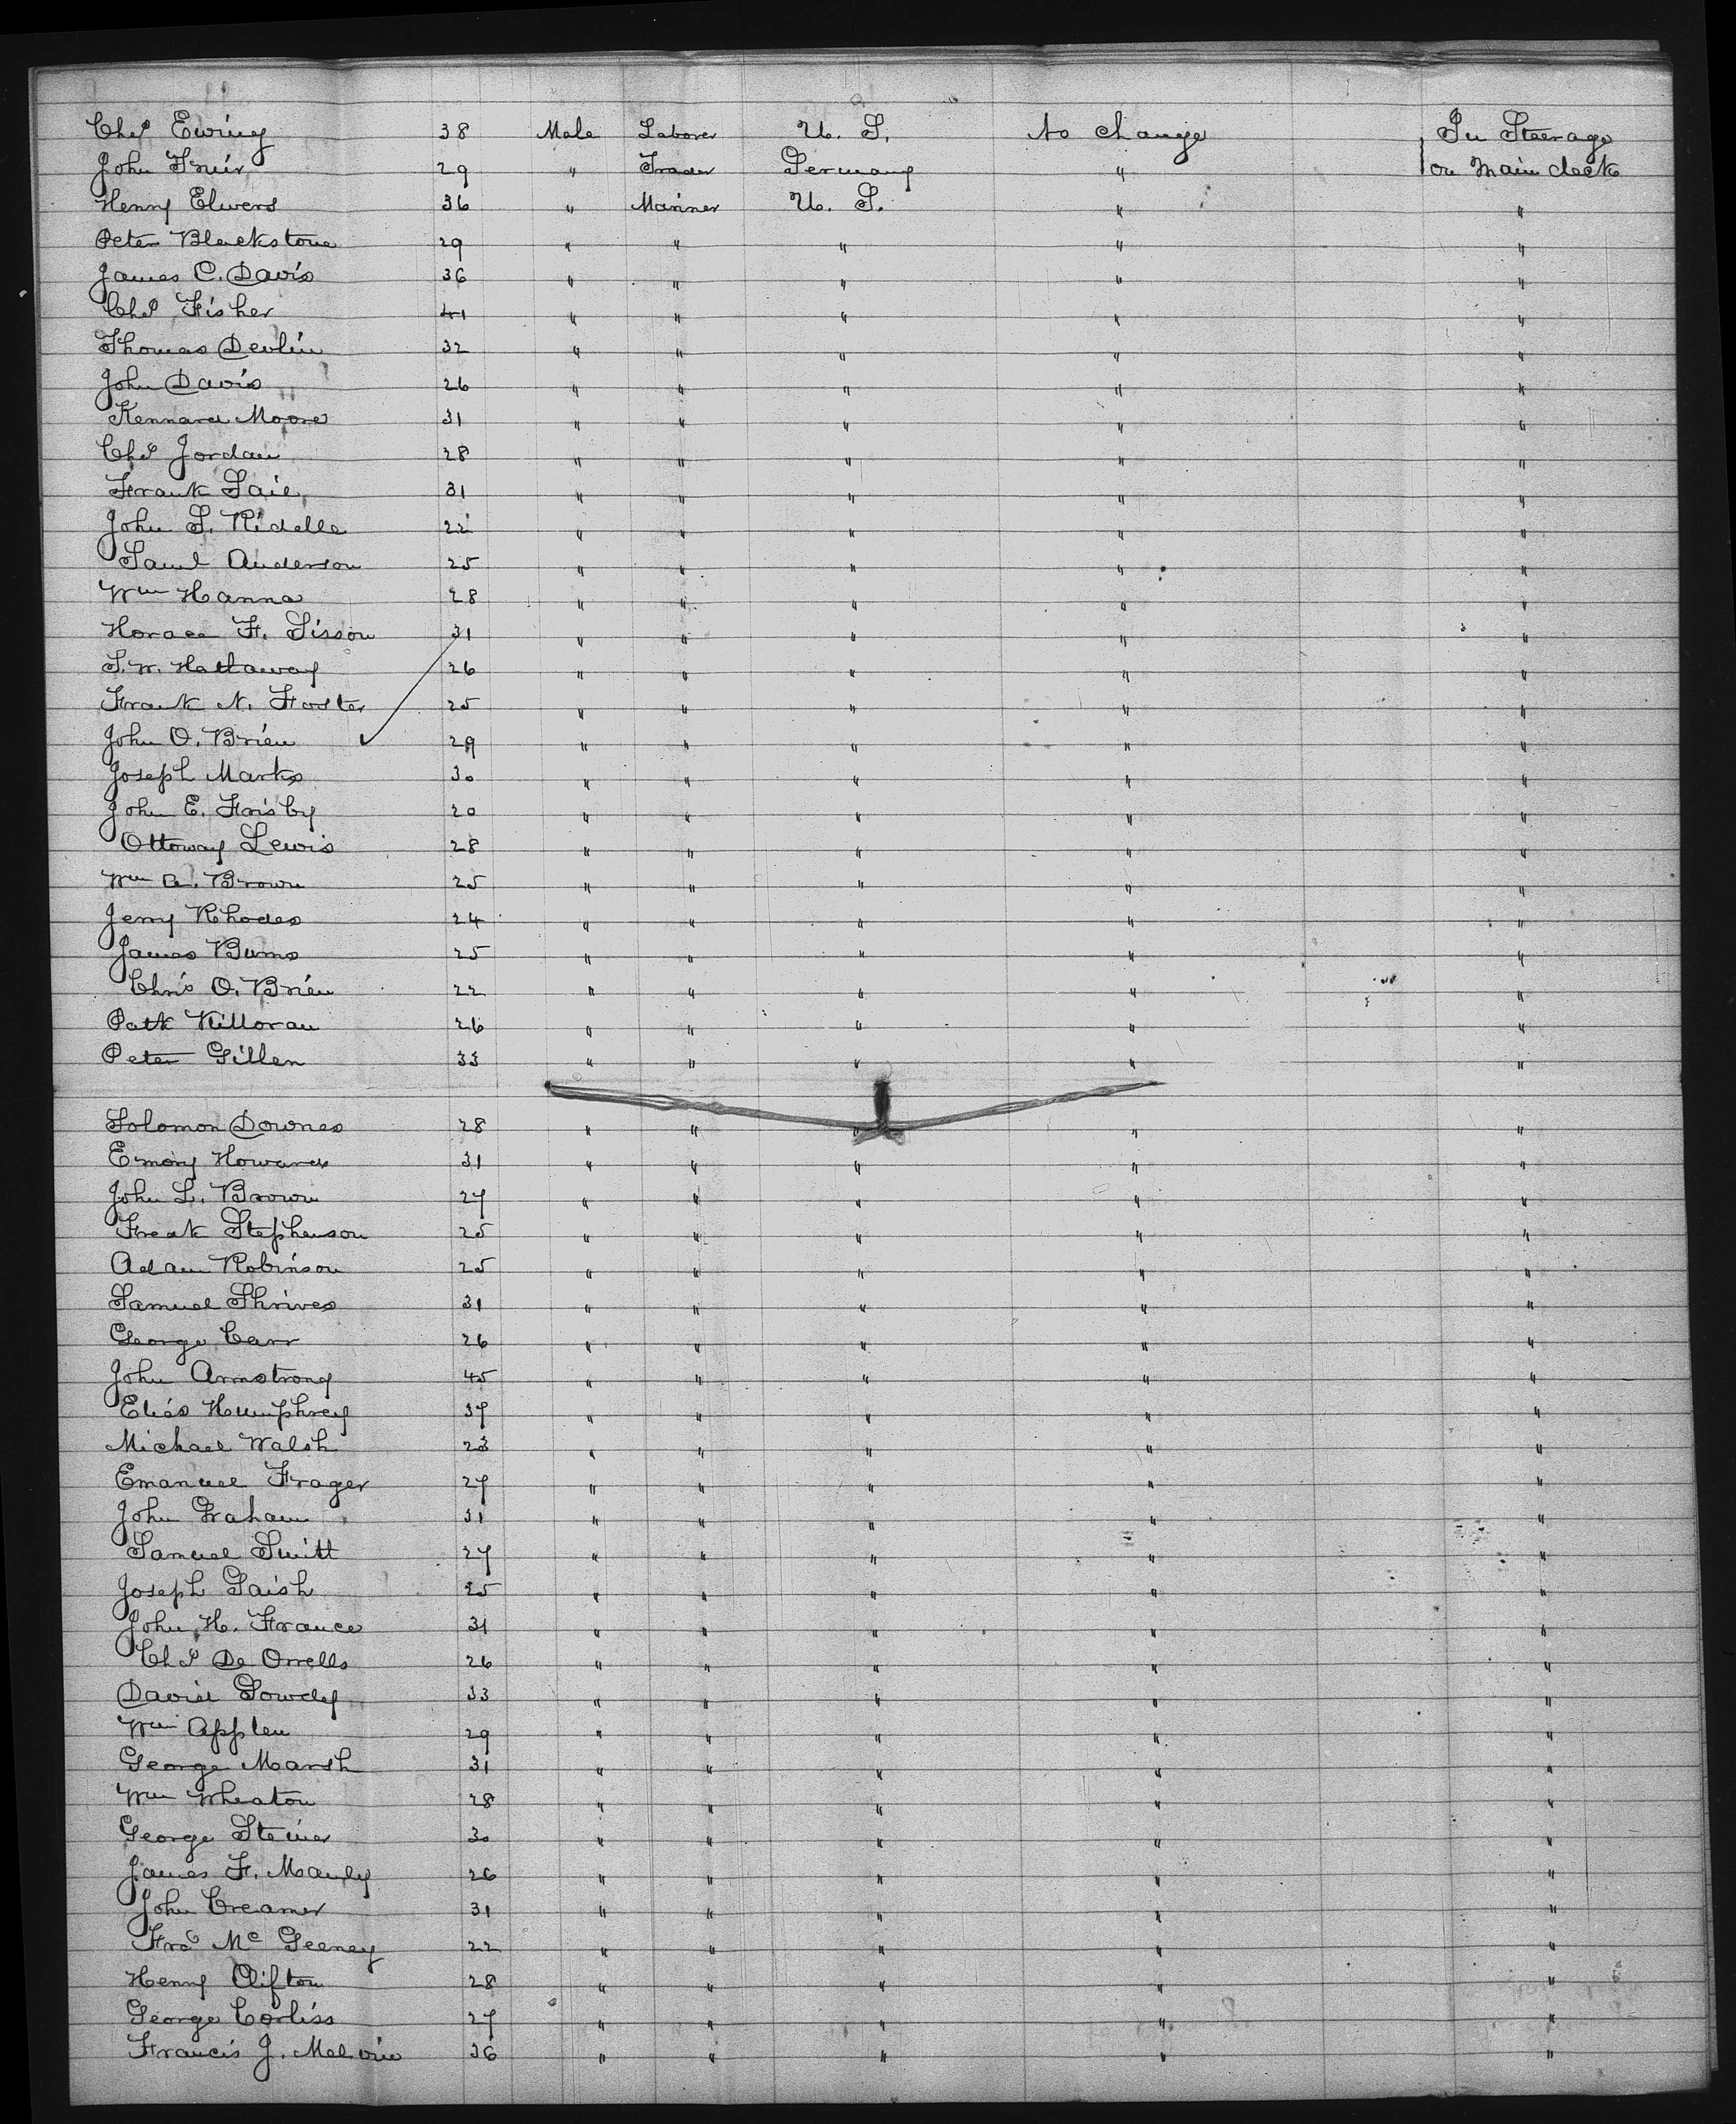 Chas Ewing 38 Male Laborer U. S. No change In Steerage
John 29 " Trader Germany " on Main deck
Henry Elwers 36 " Mariner U. S. " "
Peter Blackstone 29 " " " " "
James C. Davis 36 " " " " "
Chas Fisher 41 " " " " "
Thomas Devlin 32 " " " " "
John Davis 26 " " " " "
Kennard Moore 31 " " " " "
Chas Jordan 28 " " " " "
Frank 31 " " " " "
John S. Ridelle 22 " " " " "
Saml Anderson 25 " " " " "
Wm Hanna 28 " " " " "
Horace F. Sisson 31 " " " " "
S. W. Hattaway 26 " " " " "
Frank N. Foster 25 " " " " "
John O. Brien 29 " " " " "
Joseph Marks 30 " " " " "
John E. Frisby 20 " " " " "
Ottoway Lewis 28 " " " " "
Wm A. Brown 25 " " " " "
Jerry Rhodes 24 " " " " "
James Burns 25 " " " " "
Chris O. Brien 22 " " " " "
Patk Killoran 26 " " " " "
Peter Gillen 33 " " " " "
Solomon Downes 28 " " " " "
Emory Howard 31 " " " " "
John L. Brown 27 " " " " "
Fredk Stephenson 25 " " " " "
Adam Robinson 25 " " " " "
Samuel Shrives 31 " " " " "
George Carr 26 " " " " "
John Armstrong 45 " " " " "
Elias Humphrey 37 " " " " "
Michael Walsh 23 " " " " "
Emanuel Frager 27 " " " " "
John Graham 31 " " " " "
Samuel 27 " " " " "
Joseph 25 " " " " "
John H. France 31 " " " " "
Chas De Orrells 26 " " " " "
David Gowdy 33 " " " " "
Wm Applen 29 " " " " "
George Marsh 31 " " " " "
Wm Wheaton 28 " " " " "
George Steiner 30 " " " " "
James F. Manly 26 " " " " "
John Creamer 31 " " " " "
Fras Mc Geeney 22 " " " " "
Henry Clifton 28 " " " " "
George Corliss 27 " " " " "
Francis J. Melvin 36 " " " " "